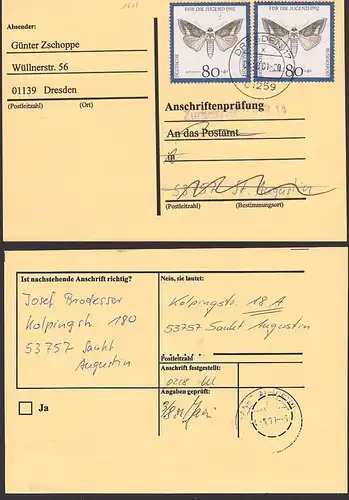 Absender:
Günter Zschoppe
Wüllnerstr. 56
01139 Dresden
(Postleitzahl) (Ort)
FÜR DIE JUGEND 1992 FÜR DIE JUGEND 1992
80 80
DRESDEN
01259
Anschriftenprüfung
An das Postamt
in
53757 St. Augustin
(Postleitzahl) (Bestimmungsort)
Ist nachstehende Anschrift richtig?
Josef Brodesser
Kolpingstr. 180
53757 Sankt
Augustin
Ja
Nein, sie lautet:
Kolpingstr. 18 A
53757 Sankt Augustin
Postleitzahl
Anschrift festgestellt:
Angaben geprüft: